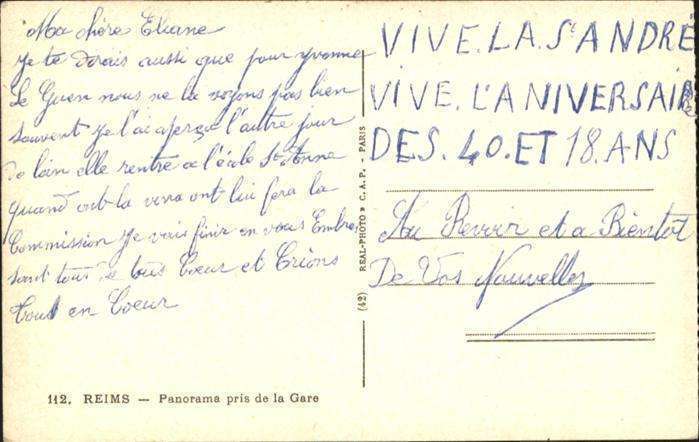 Ma chère Eliane
Je te dirais aussi que pour yvonne
Le Guen nous ne la voyons pas bien
souvent Je l'ai aperçu l'autre jour
De loin elle rentre a l'école Ste Anne
quand ont la verra ont lui fera la
Commission Je vais finir en vous Embras
sant tous De tous Coeur et Crions
tous en Coeur
VIVE.LA.St ANDRE
VIVE.L'ANIVERSAIRE
DES.40.ET 18.ANS
Au Revoir et a Bientot
De Vos Nouvelles
(42) REAL-PHOTO C.A.P. - PARIS
112. REIMS — Panorama pris de la Gare